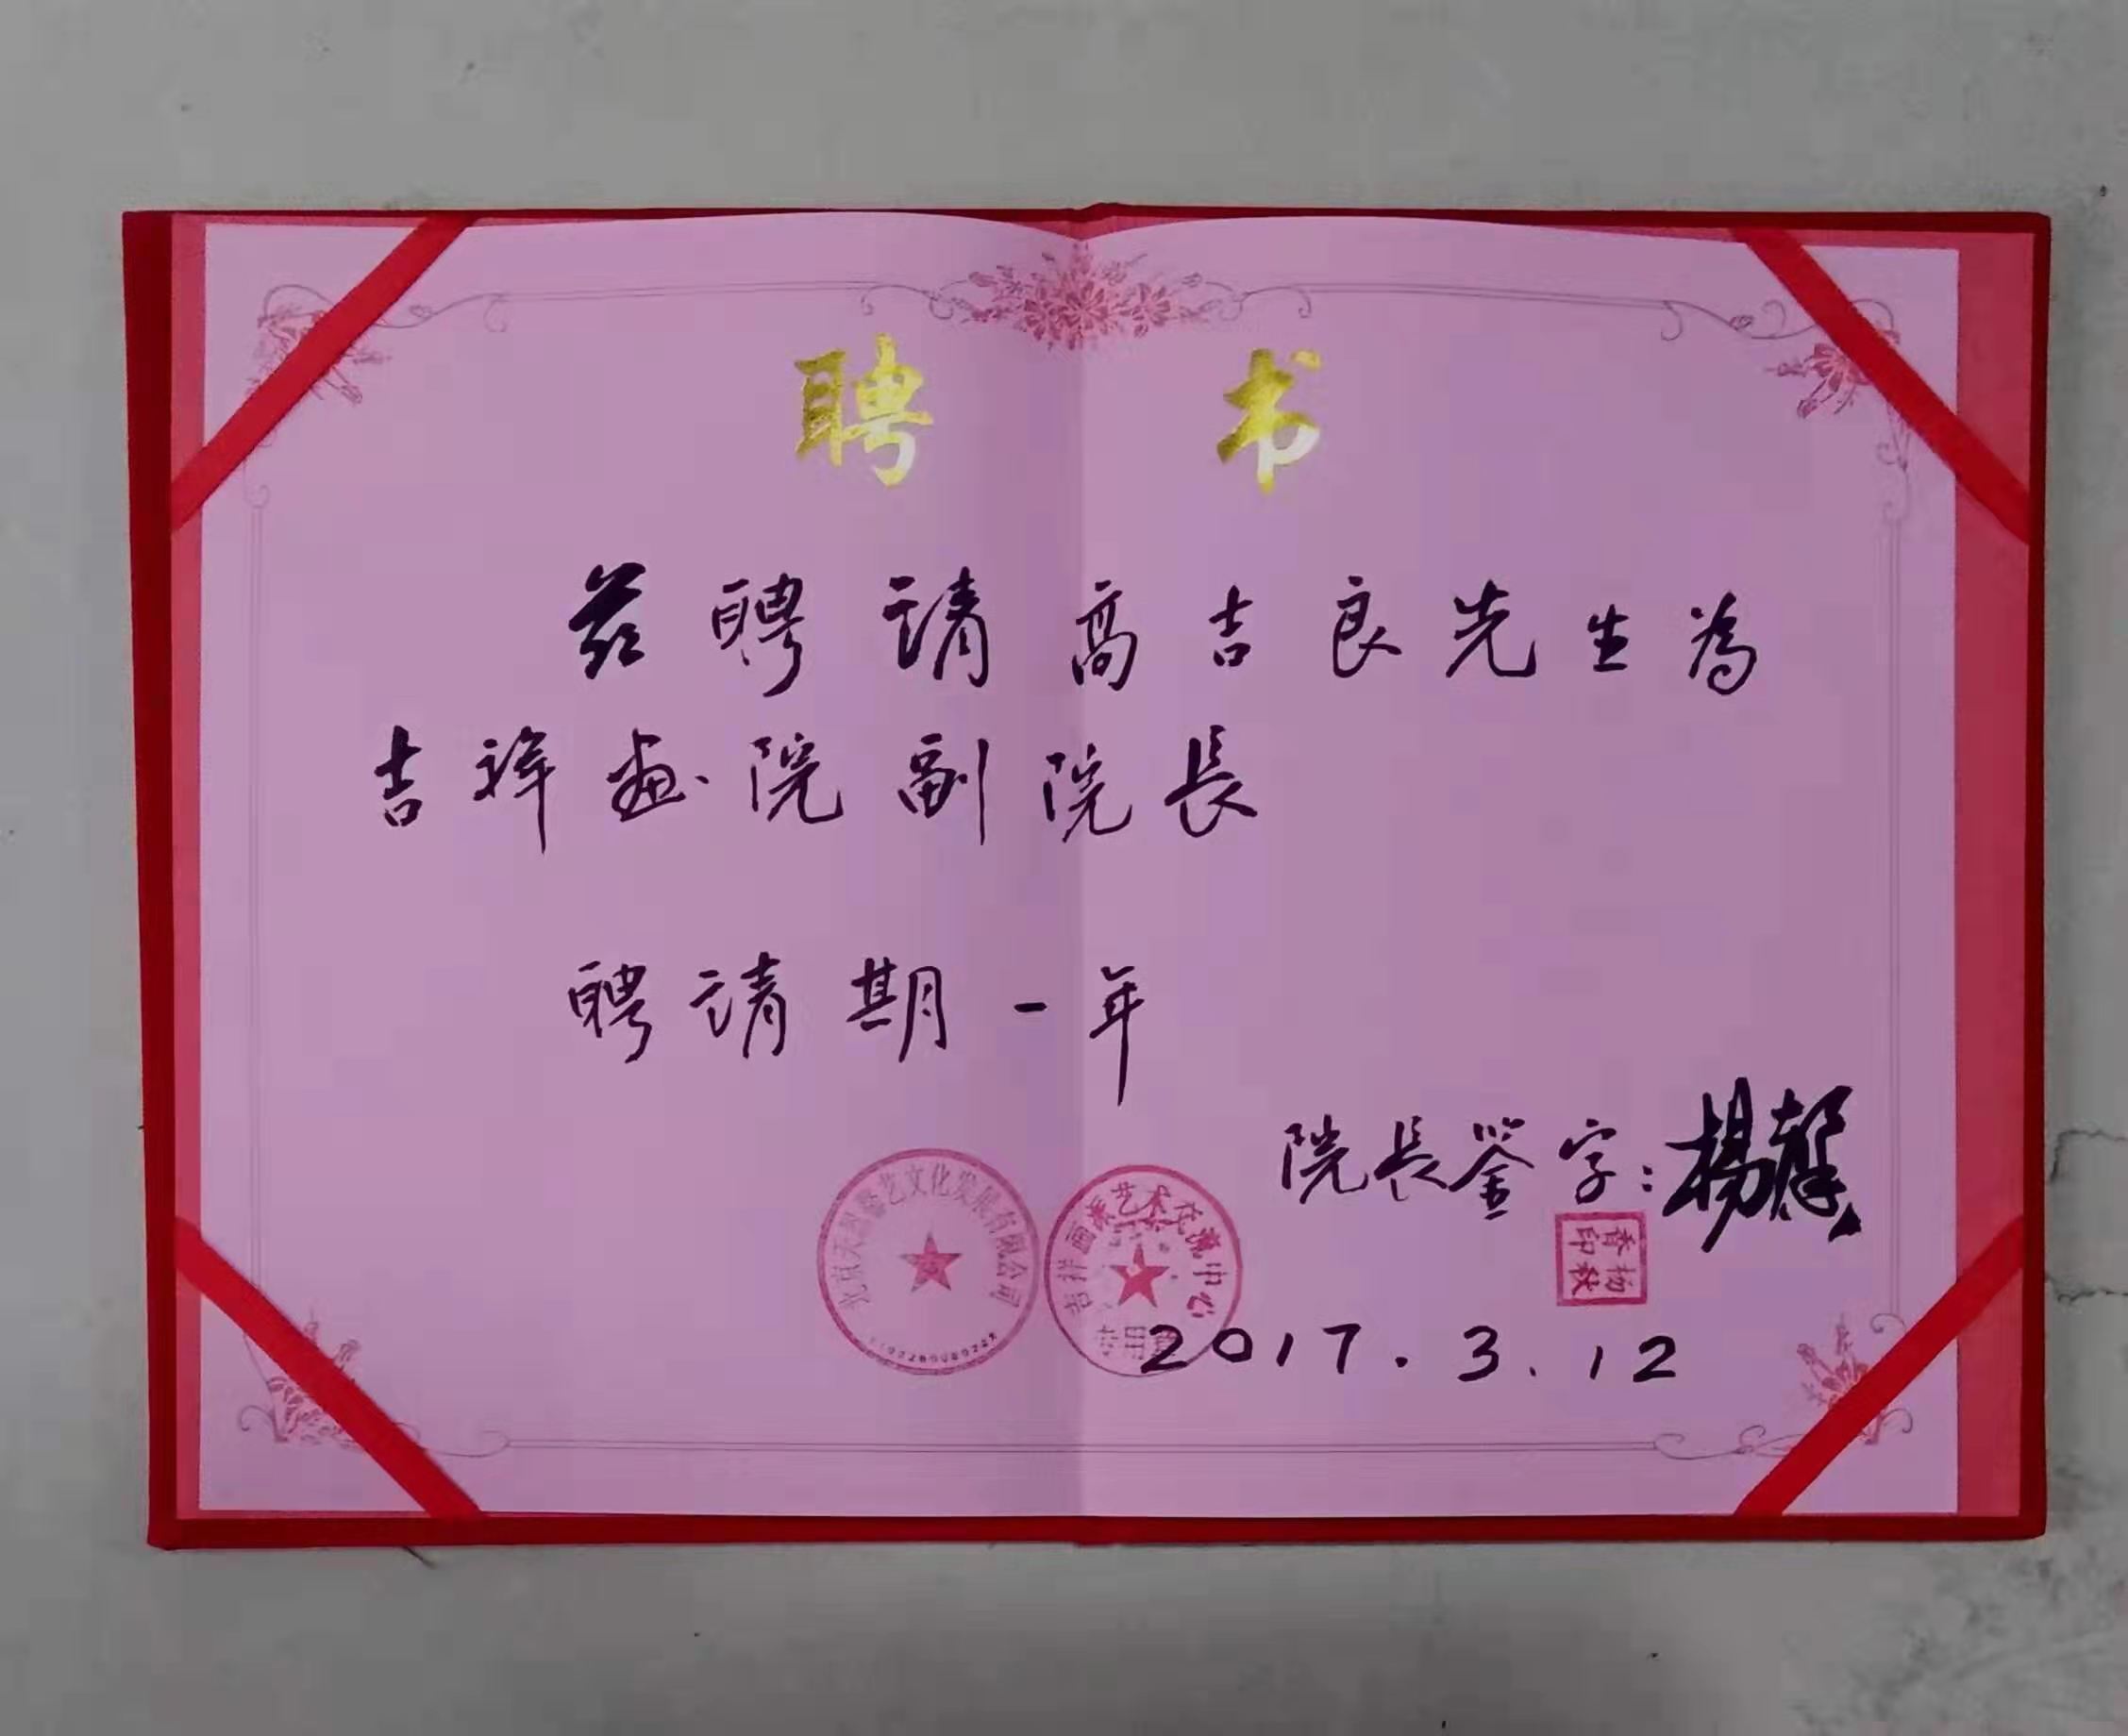 聘 书
兹聘請高吉良先生為
吉祥画院副院長
聘請期一年
院長鉴字：楊
艺文化发展有限公司
吉祥画派艺术交流中心
专用章
2017.3.12